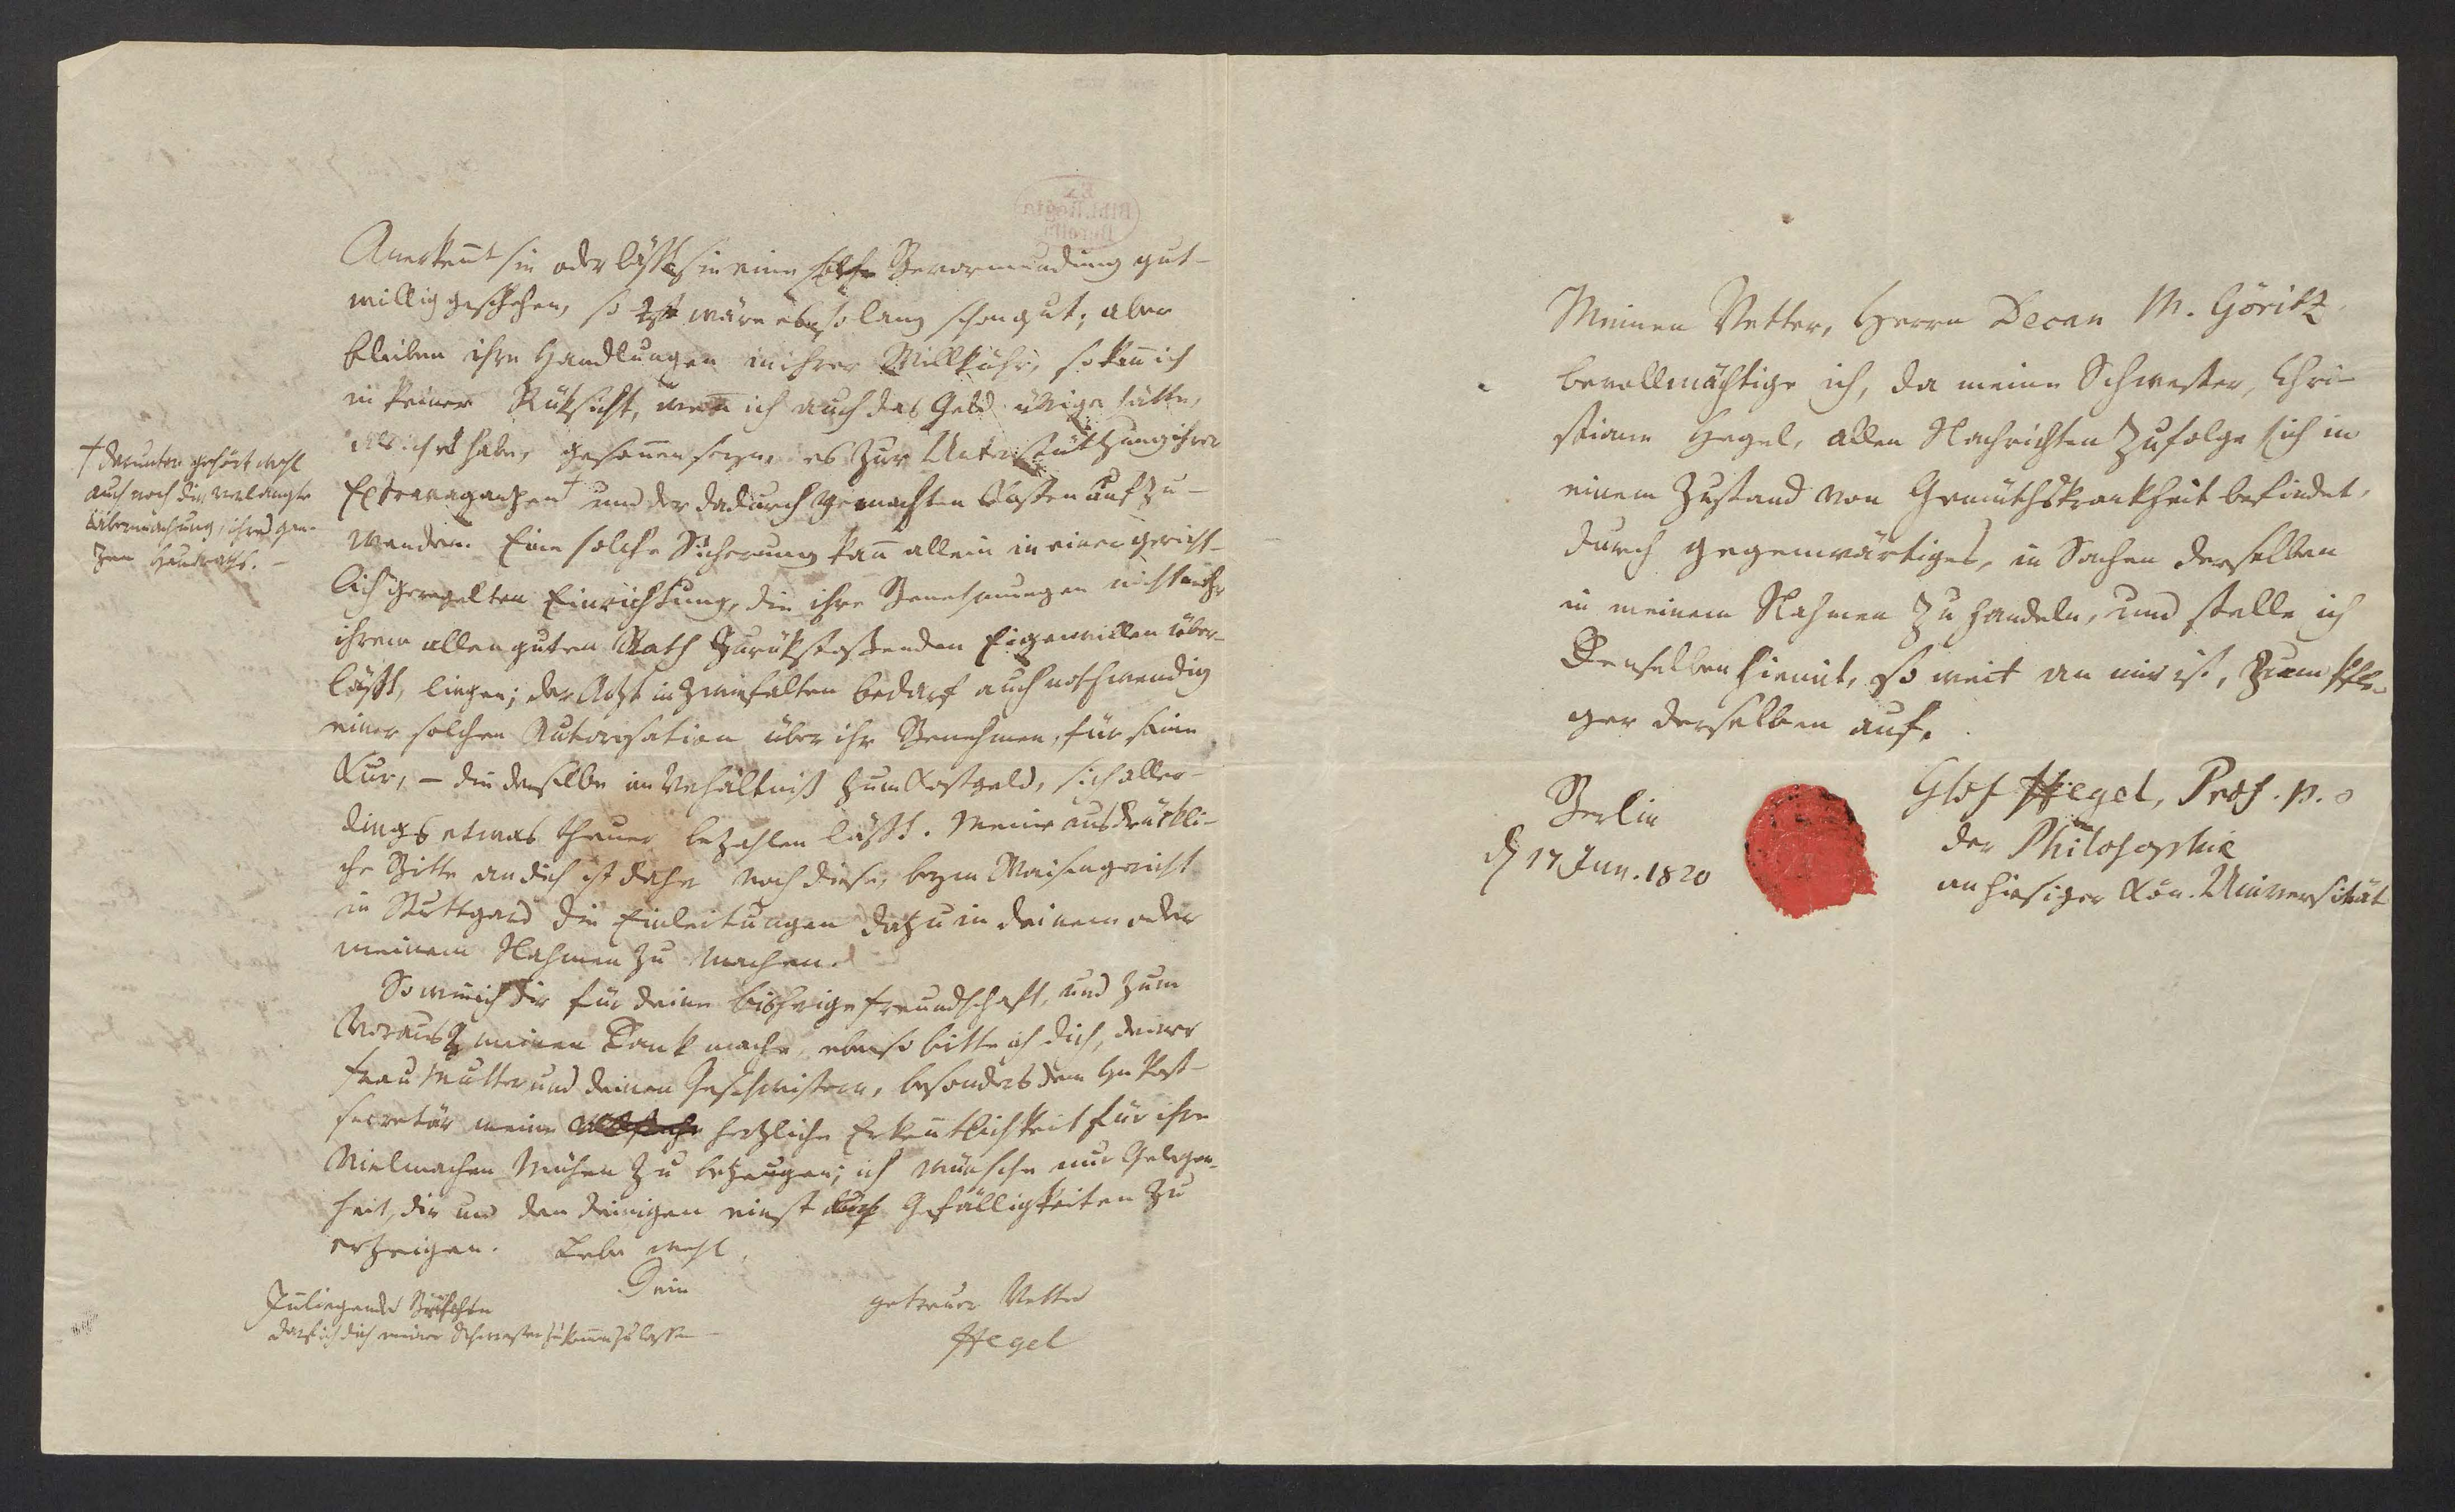 Anerkennt sie oder läßt sie eine solche Bevormundung gut-
willig geschehen, so wäre es so lang schon gut; aber
bleiben ihre Handlungen in ihrer Willkühr, so kann ich
in keiner Rüksicht, wenn ich auch das Geld übrig hätte,
habe, gesonnen seyn, es zur Unterstützung ihrer
Extravaganzen † und der dadurch gemachten Kosten aufzu-
wenden. Eine solche Sicherung kann allein in einer gericht-
lich geregelten Einrichtung, die ihr Benehmen nicht mehr
ihrem allen guten Rath zurükstoßenden Eigenwillen über-
läßt, liegen; der Arzt in Zwiefalten bedarf auch nothwendig
einer solchen Autorisation über ihr Benehmen, für seine
Kur, – die derselbe im Verhältniß zum Kostgeld, sich aller-
dings etwas theuer bezahlen läßt. Meine ausdrükli-
che Bitte an dich ist daher noch diese, beym Waisengericht
in Stuttgard die Einleitungen dazu in deinem oder
meinem Nahmen zu machen.
So wie ich dir für deine bisherige Freundschaft, und zum
Voraus meinen Dank mache, ebenso bitte ich dich, deiner
Frau Mutter und deinen Geschwistern, besonders dem Hn Post-
secretär meine herzliche Erkenntlichkeit für ihre
Mühen zu bezeugen; ich wünsche nur Gelegen-
heit, dir und den deinigen einst Gefälligkeiten zu
erzeigen. Lebe wohl.
Dein
getreuer Vetter
Hegel
† darunter gehört wohl
auch noch die verlangte
Übermachung ihres gan-
zen Hausraths. –
Inliegendes
bitte ich dich meiner Schwester zukommen zu lassen –
Meinen Vetter, Herrn Decan M. Göritz,
bevollmächtige ich, da meine Schwester, Chri-
stiane Hegel, allen Nachrichten zufolge sich in
einem Zustand von Gemüthskrankheit befindet,
durch gegenwärtiges, in Sachen derselben
in meinem Nahmen zu handeln, und stelle ich
Denselben hiemit, so weit an mir ist, zum Pfle-
ger derselben auf.
Berlin
d 17 Jun. 1820
Hegel, Prof. p. o
der Philosophie
an hiesiger Kön. Universität